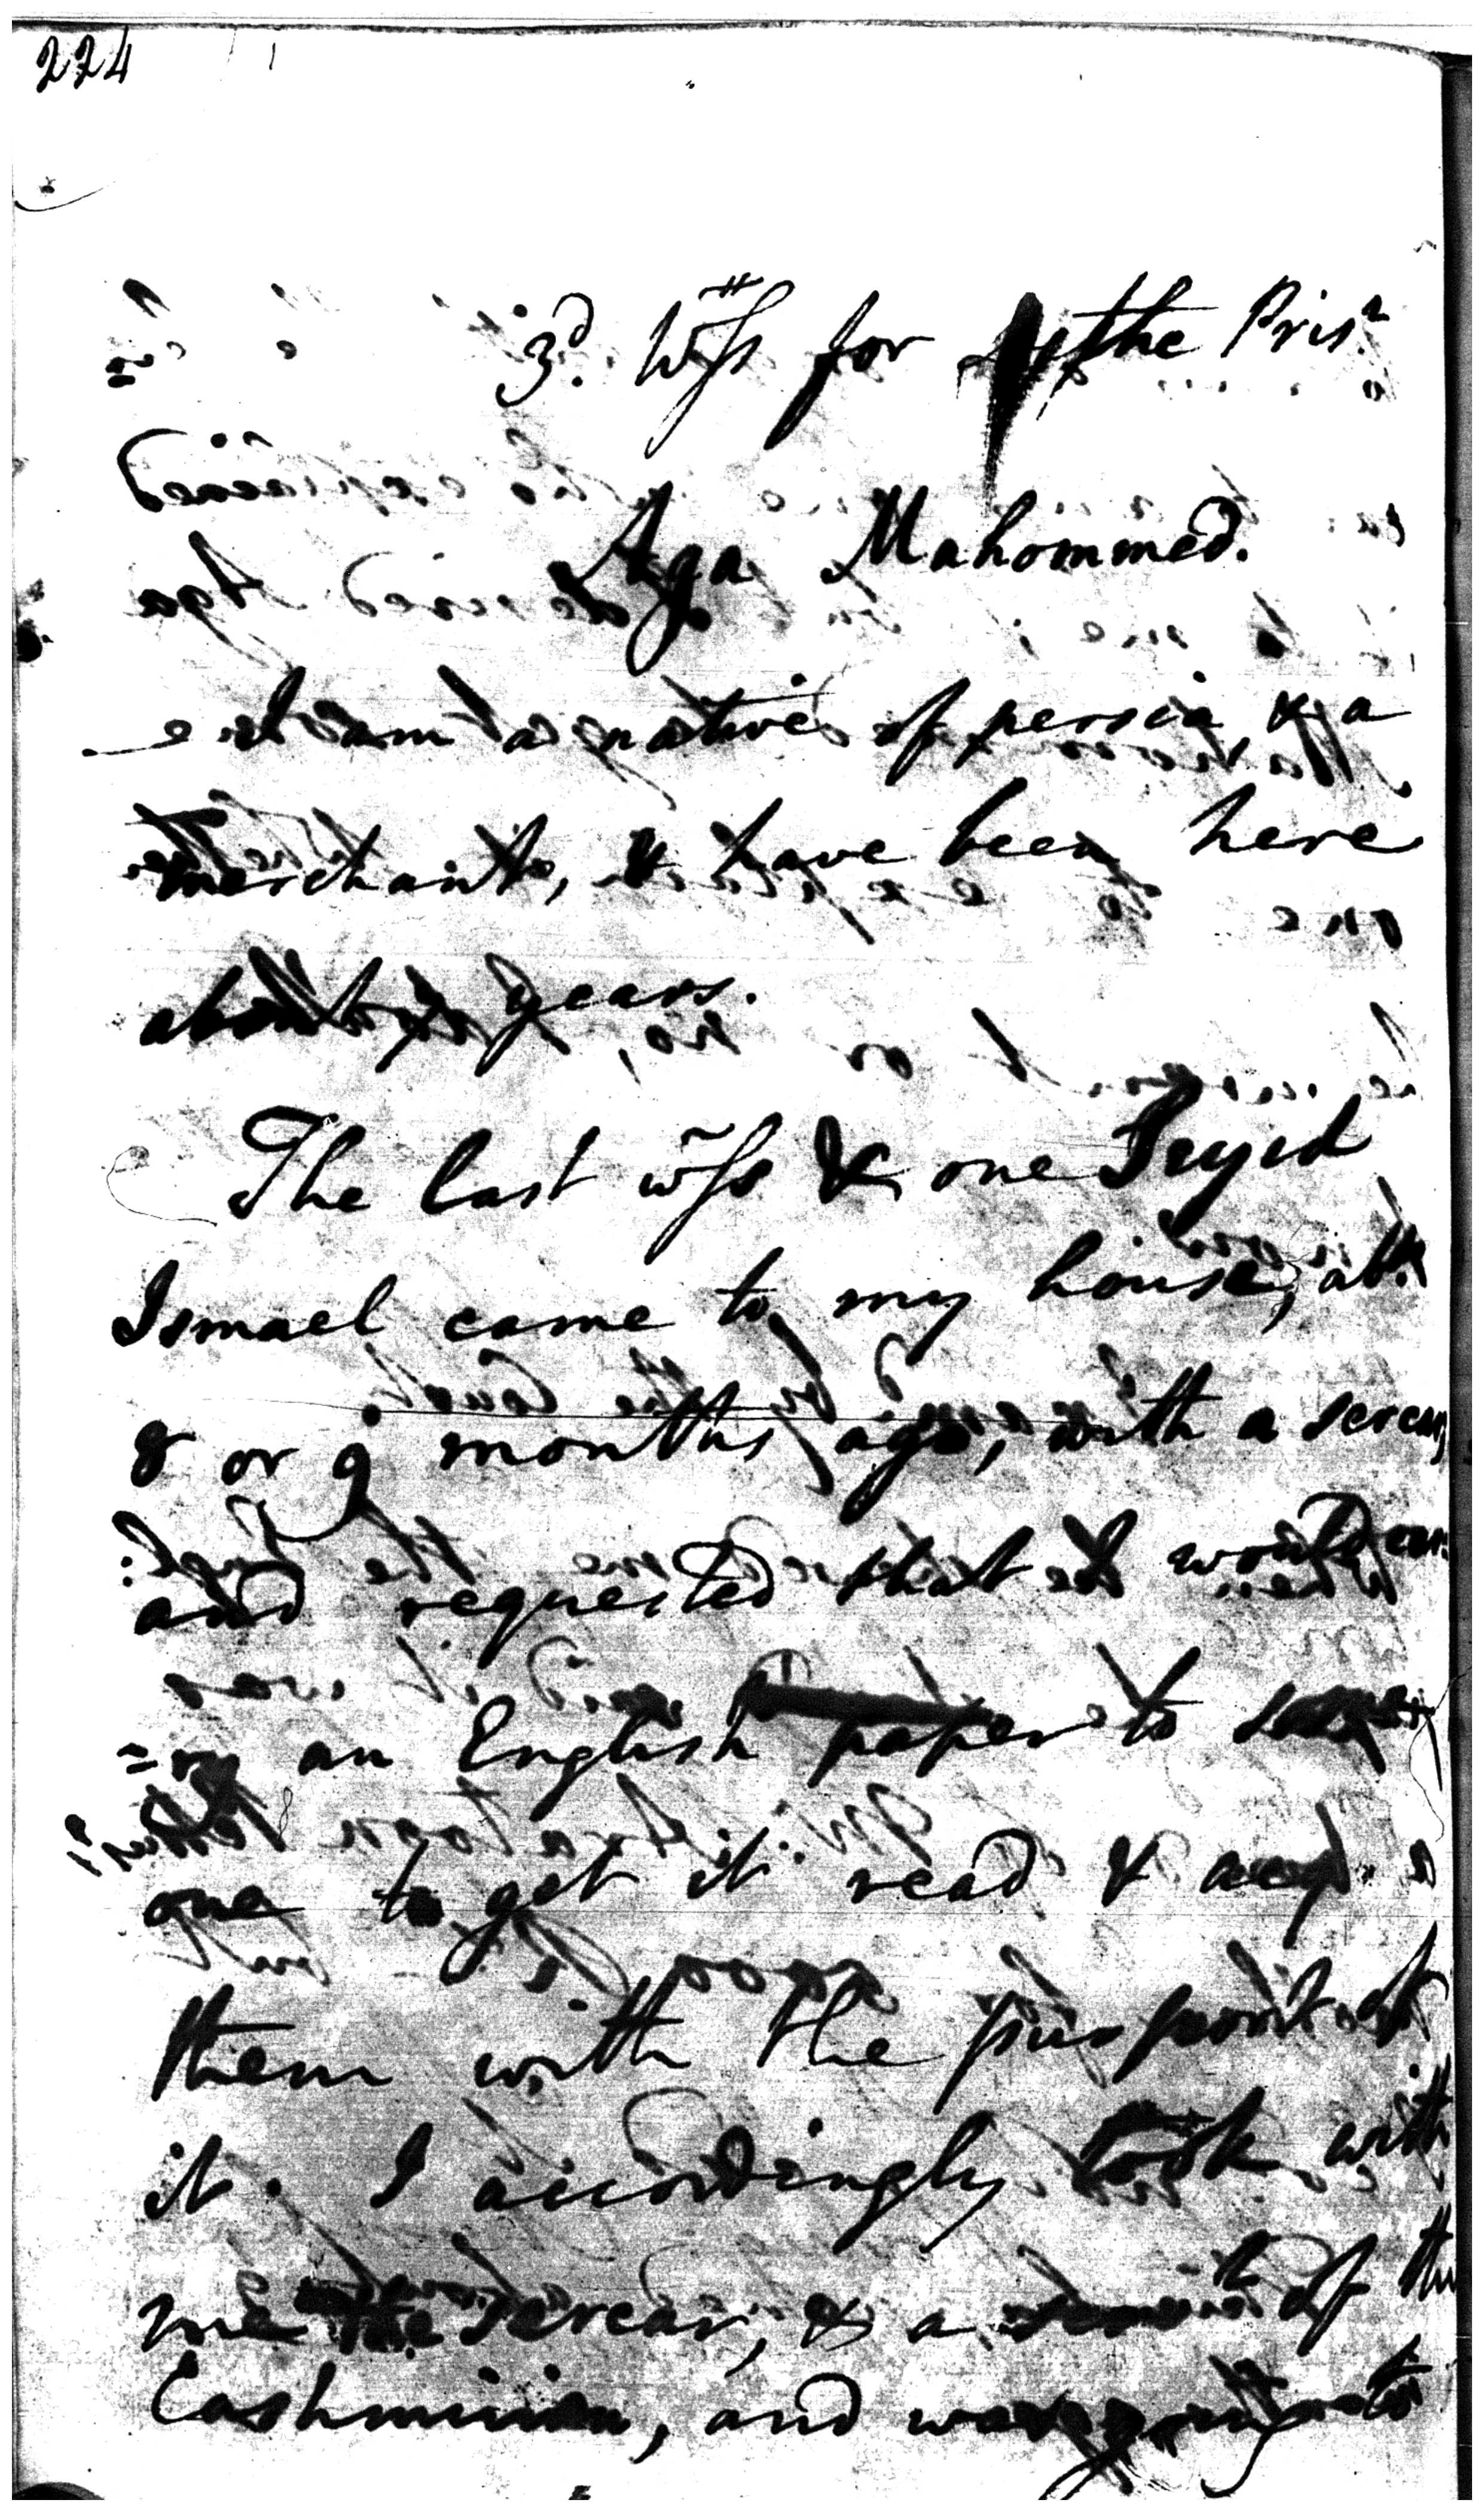 224
3d. Wss for the Prisr
Aga Mahommed.
I am a native of persia, & a
merchant, & have been here
about years.
The last wss & one Seyed
Ismael came to my house, abt
8 or 9 months ago, with a sercar,
and requested that I would car:
=ry an English paper to some
one to get it read & acqt
them with the purport of
it. I accordingly took with
me the Sercar, & a servt of the
Cashmirian, and was going to